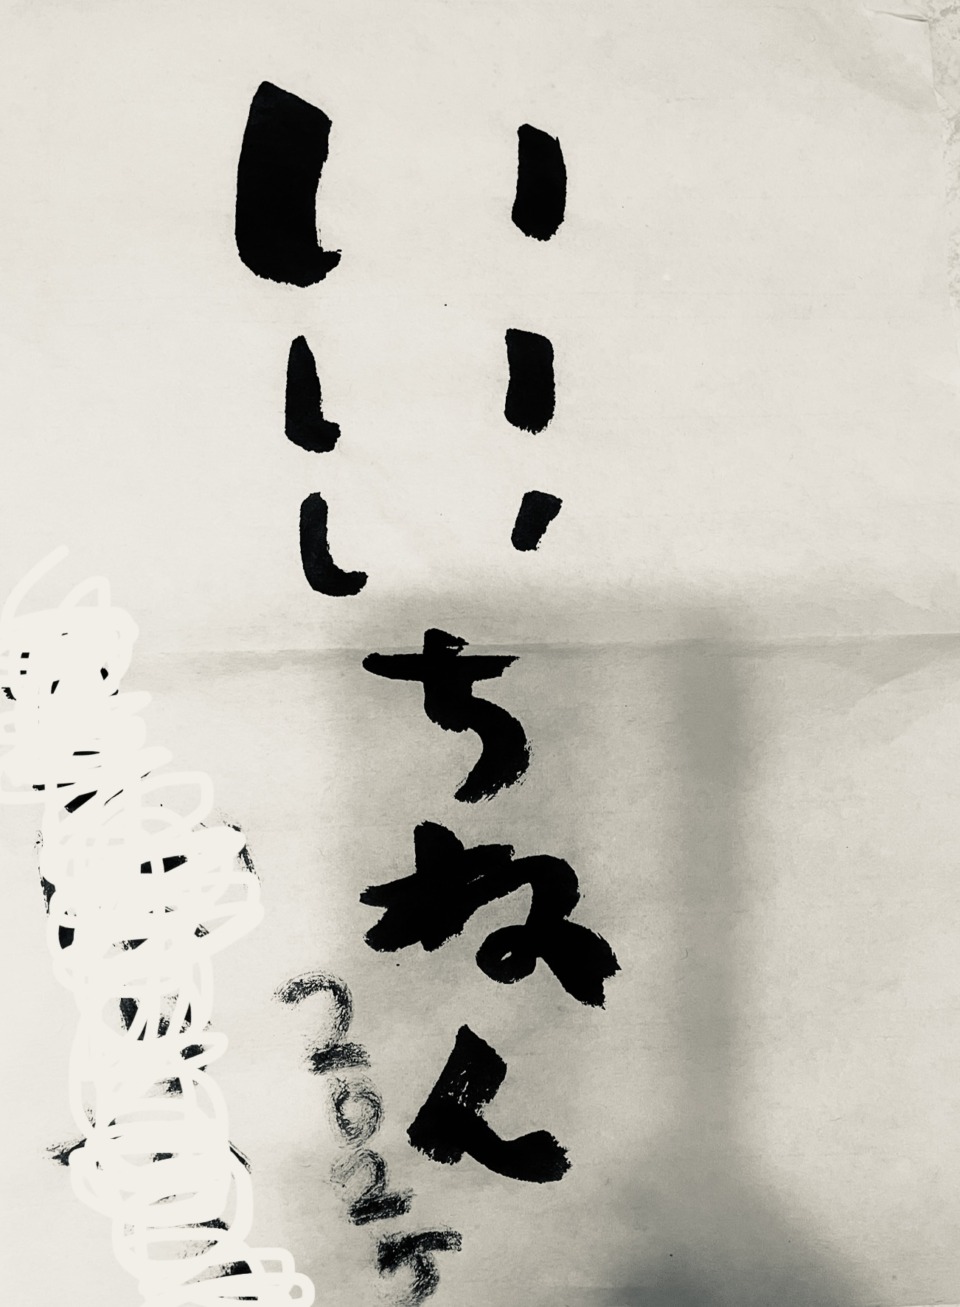 いいいちねん
2025